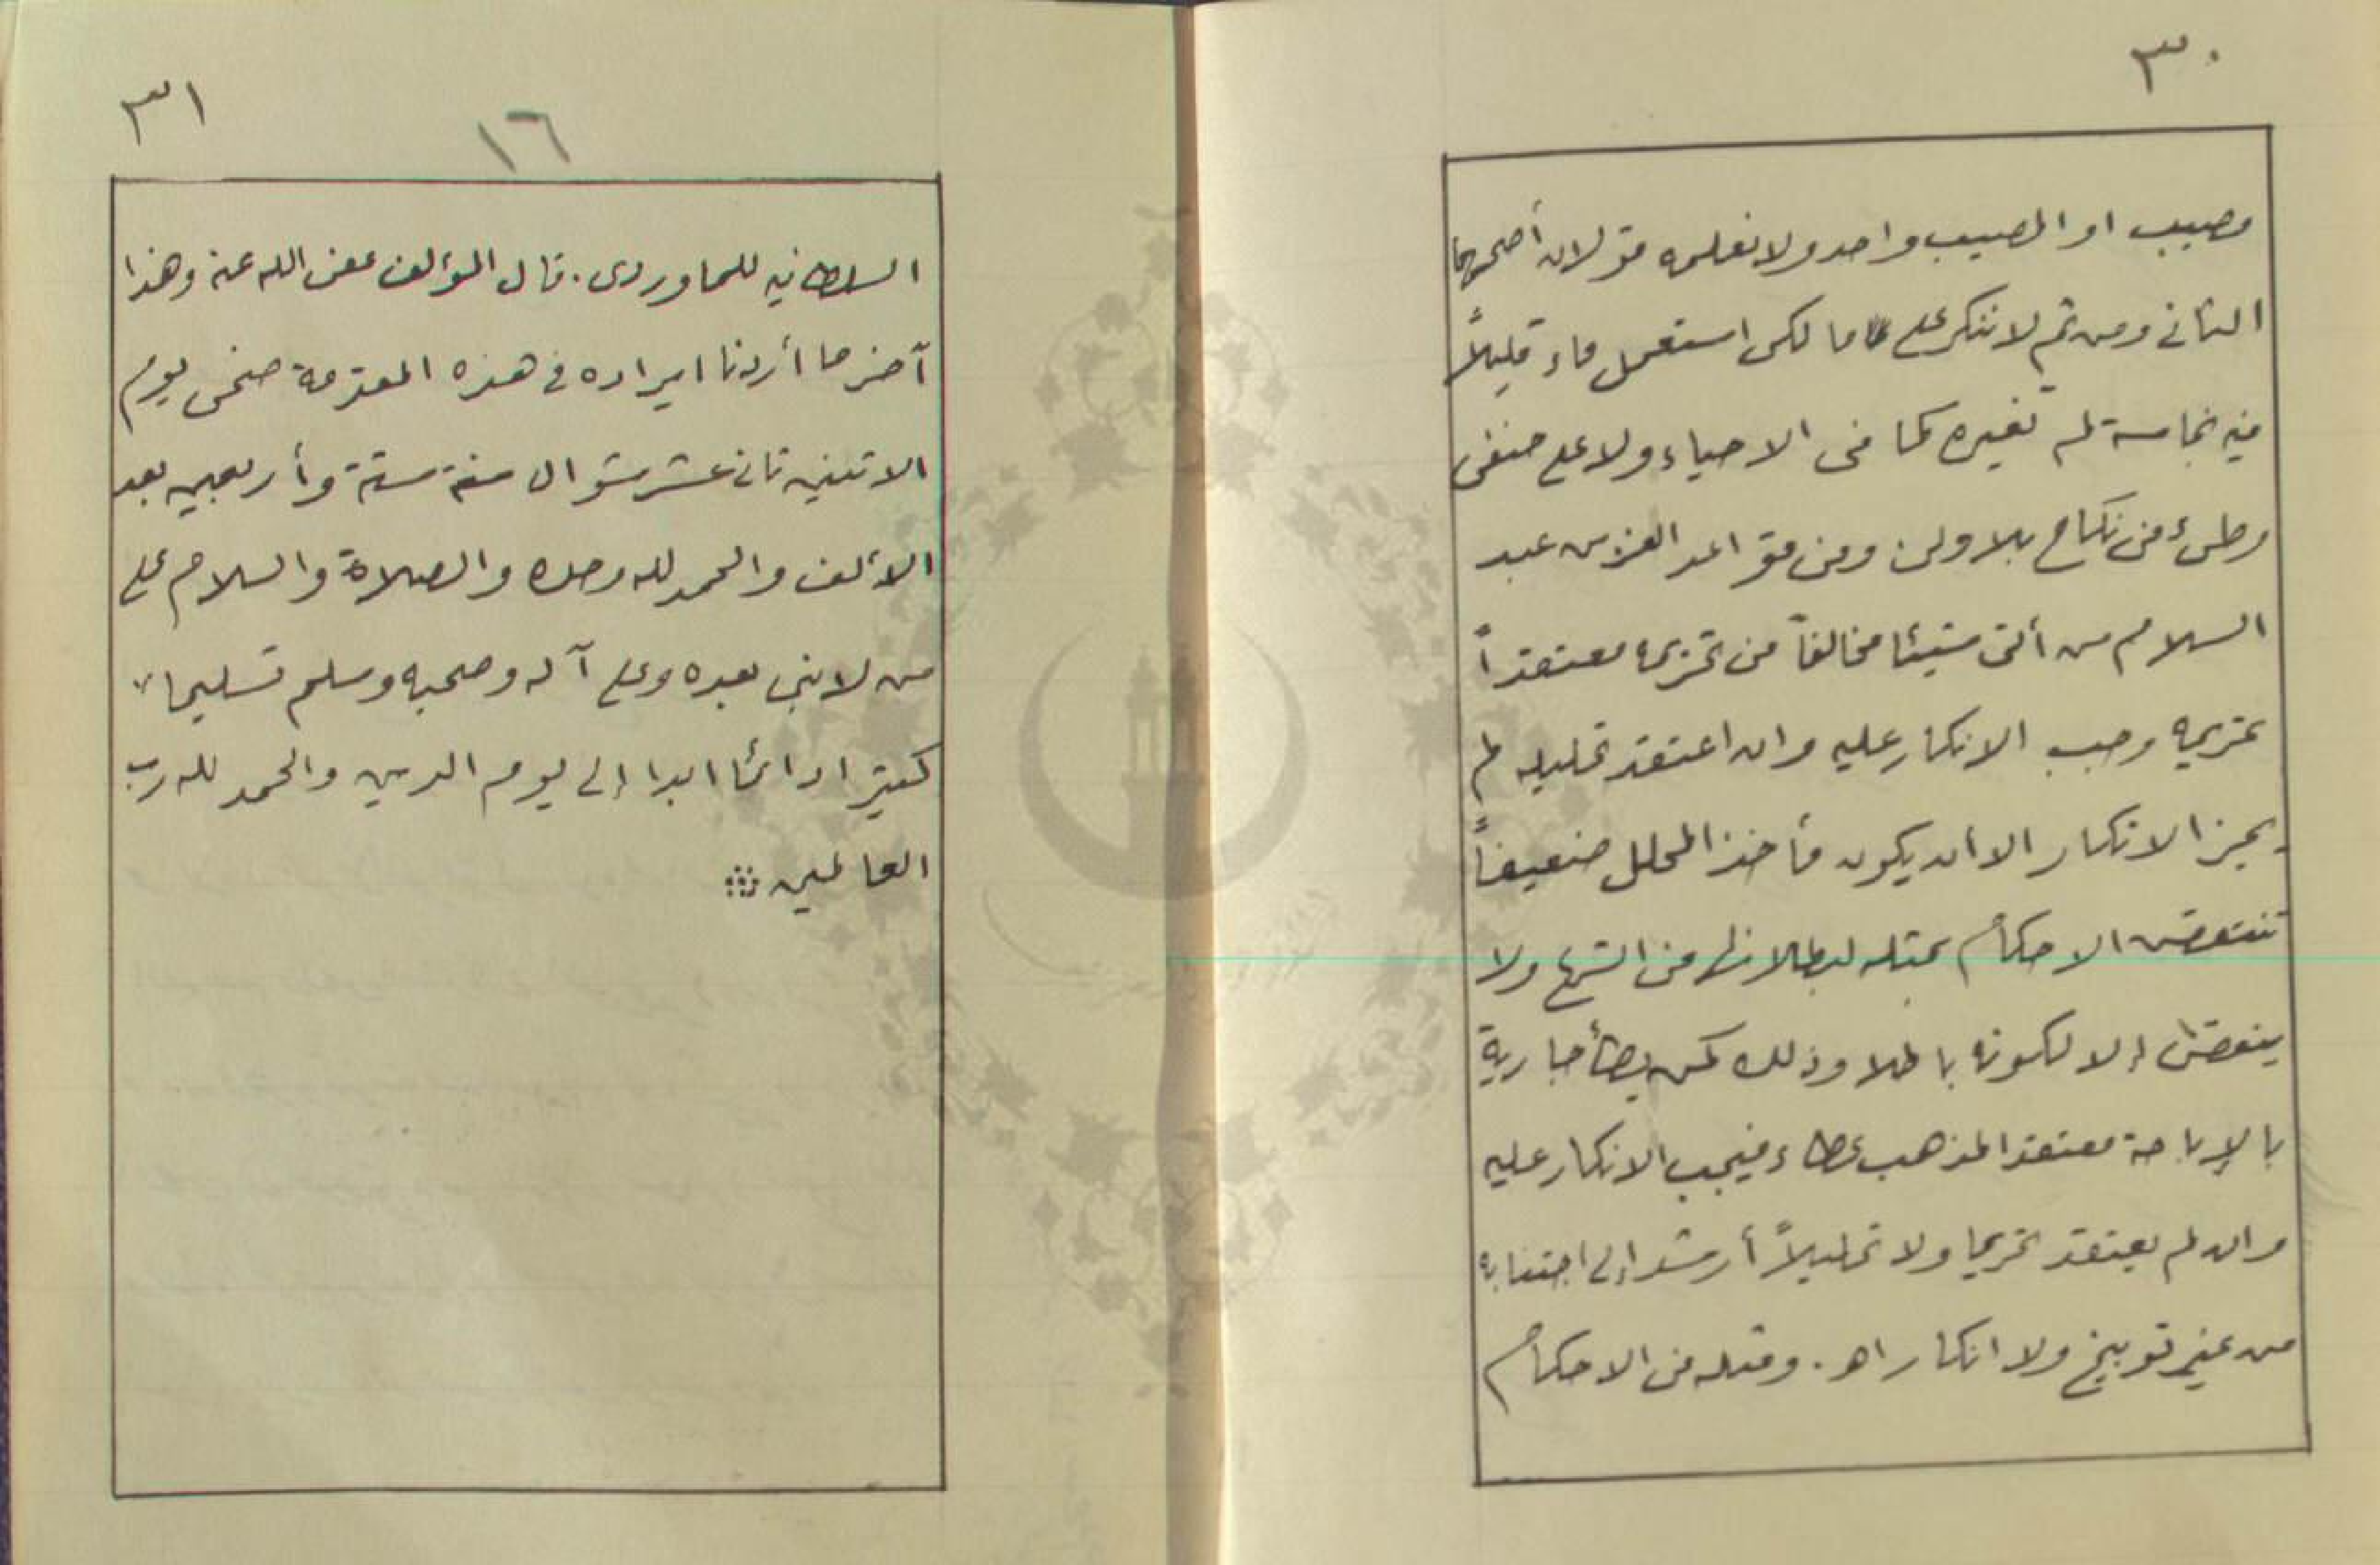 ٣٠
مصيب او المصيب واحد ولا نعلمه قولان أصحهما
الثانى ومن ثم لا ننكر على مالكى استعمل ماء قليلاً
فيه نجاسة لم تغيره كما فى الاحياء ولا على حنفى
وطئ فى نكاح بلا ولى وفى قواعد العز بن عبد
السلام من أتى شيئا مختلفاً فى تحريمه معتقداً
تحريمه وجب الانكار عليه وان اعتقد تحليله لم
يجز الانكار الا أن يكون مأخذ المحلل ضعيفاً
تنتقض الاحكام بمثله لبطلانه فى الشرع ولا
ينقض إلا لكونه باطلا وذلك كمن يطأ جارية
بالإباحة معتقدا لمذهب عطاء فيجب الانكار عليه
وان لم يعتقد تحريما ولا تحليلاً أرشد إلى اجتنابه
من غير توبيخ ولا انكار اهـ. ومثله فى الاحكام
٣١
١٦
السلطانيه للماوردى. قال المؤلف عفى الله عنه وهذا
آخر ما أردنا ايراده فى هذه المقدمة ضحى يوم
الاثنين ثانى عشر شوال سنة ستة وأربعين بعد
الألف والحمد لله وحده والصلاة والسلام على
من لا نبى بعده وعلى آله وصحبه وسلم تسليما
كثيرا دائما ابدا إلى يوم الدين والحمد لله رب
العالمين